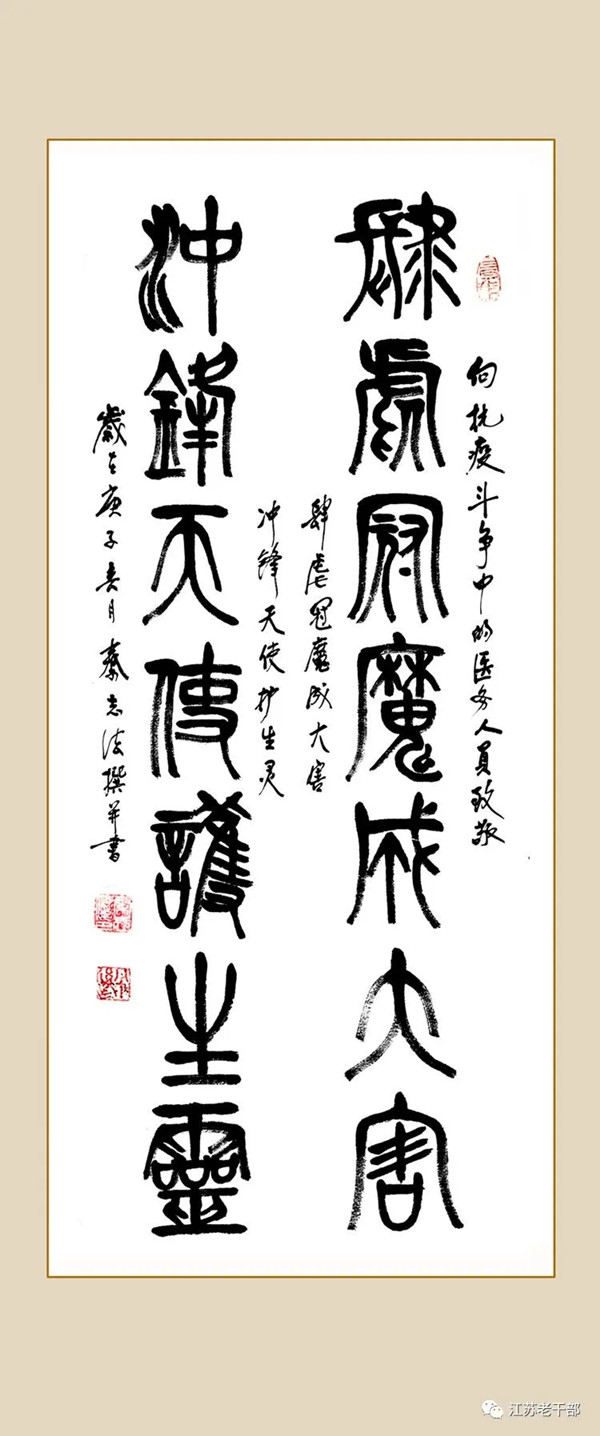 向抗疫斗争中的医务人员致敬
肆虐冠魔成大害
肆虐冠魔成大害
冲锋天使护生灵
冲鋒天使護生靈
歲在庚子春月秦志法撰并書
江苏老干部